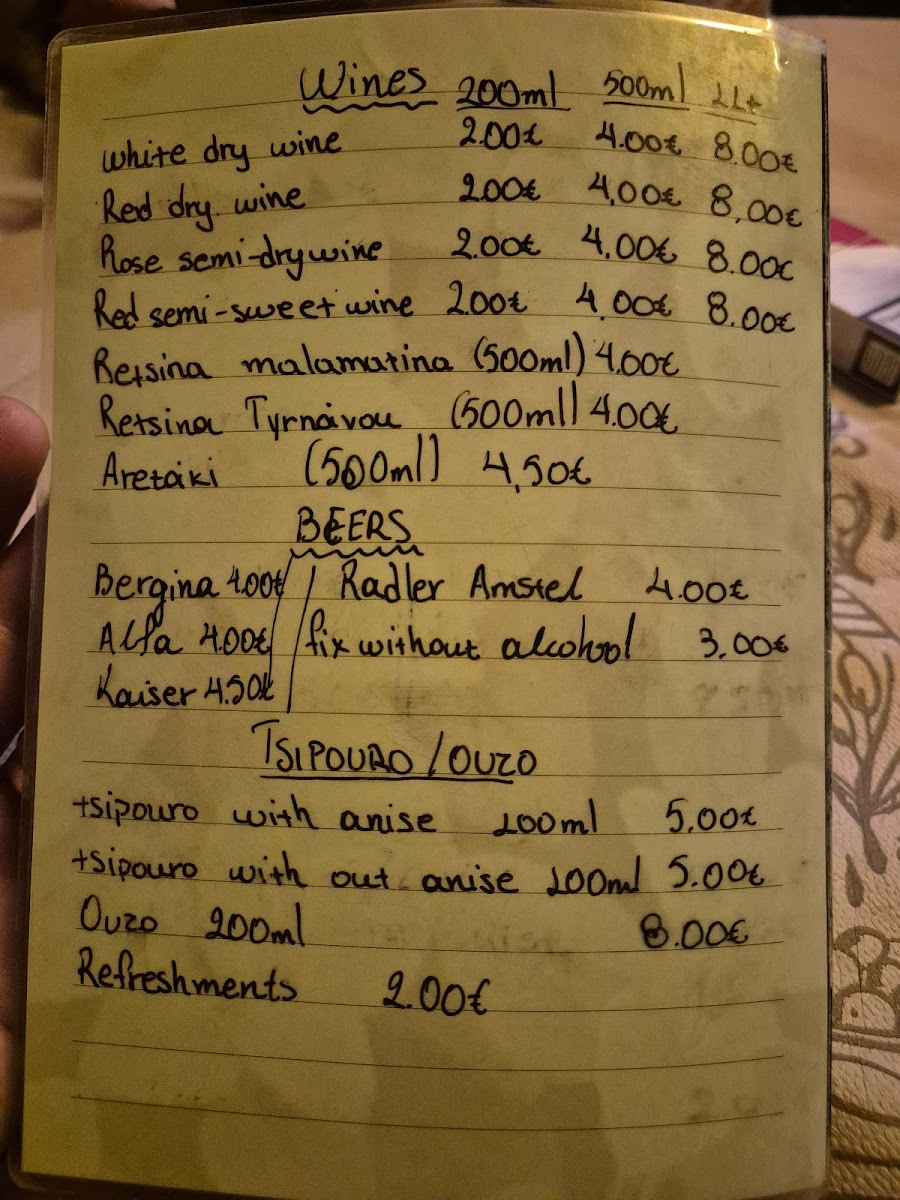 Wines 200ml 500ml 1Lt
white dry wine 2.00€ 4.00€ 8.00€
Red dry wine 2.00€ 4,00€ 8,00€
Rose semi-dry wine 2.00€ 4.00€ 8.00€
Red semi-sweet wine 2.00€ 4,00€ 8.00€
Retsina malamatina (500ml) 4.00€
Retsina Tyrnávou (500ml) 4.00€
Aretáki (500ml) 4,50€
BEERS
Bergina 4.00€ / Radler Amstel 4.00€
Alfa 4.00€ / fix without alcohool 3.00€
Kaiser 4.50€
TSIPOURO/OUZO
tsipouro with anise 100ml 5.00€
tsipouro with out anise 100ml 5.00€
Ouzo 200ml 8.00€
Refreshments 2.00€